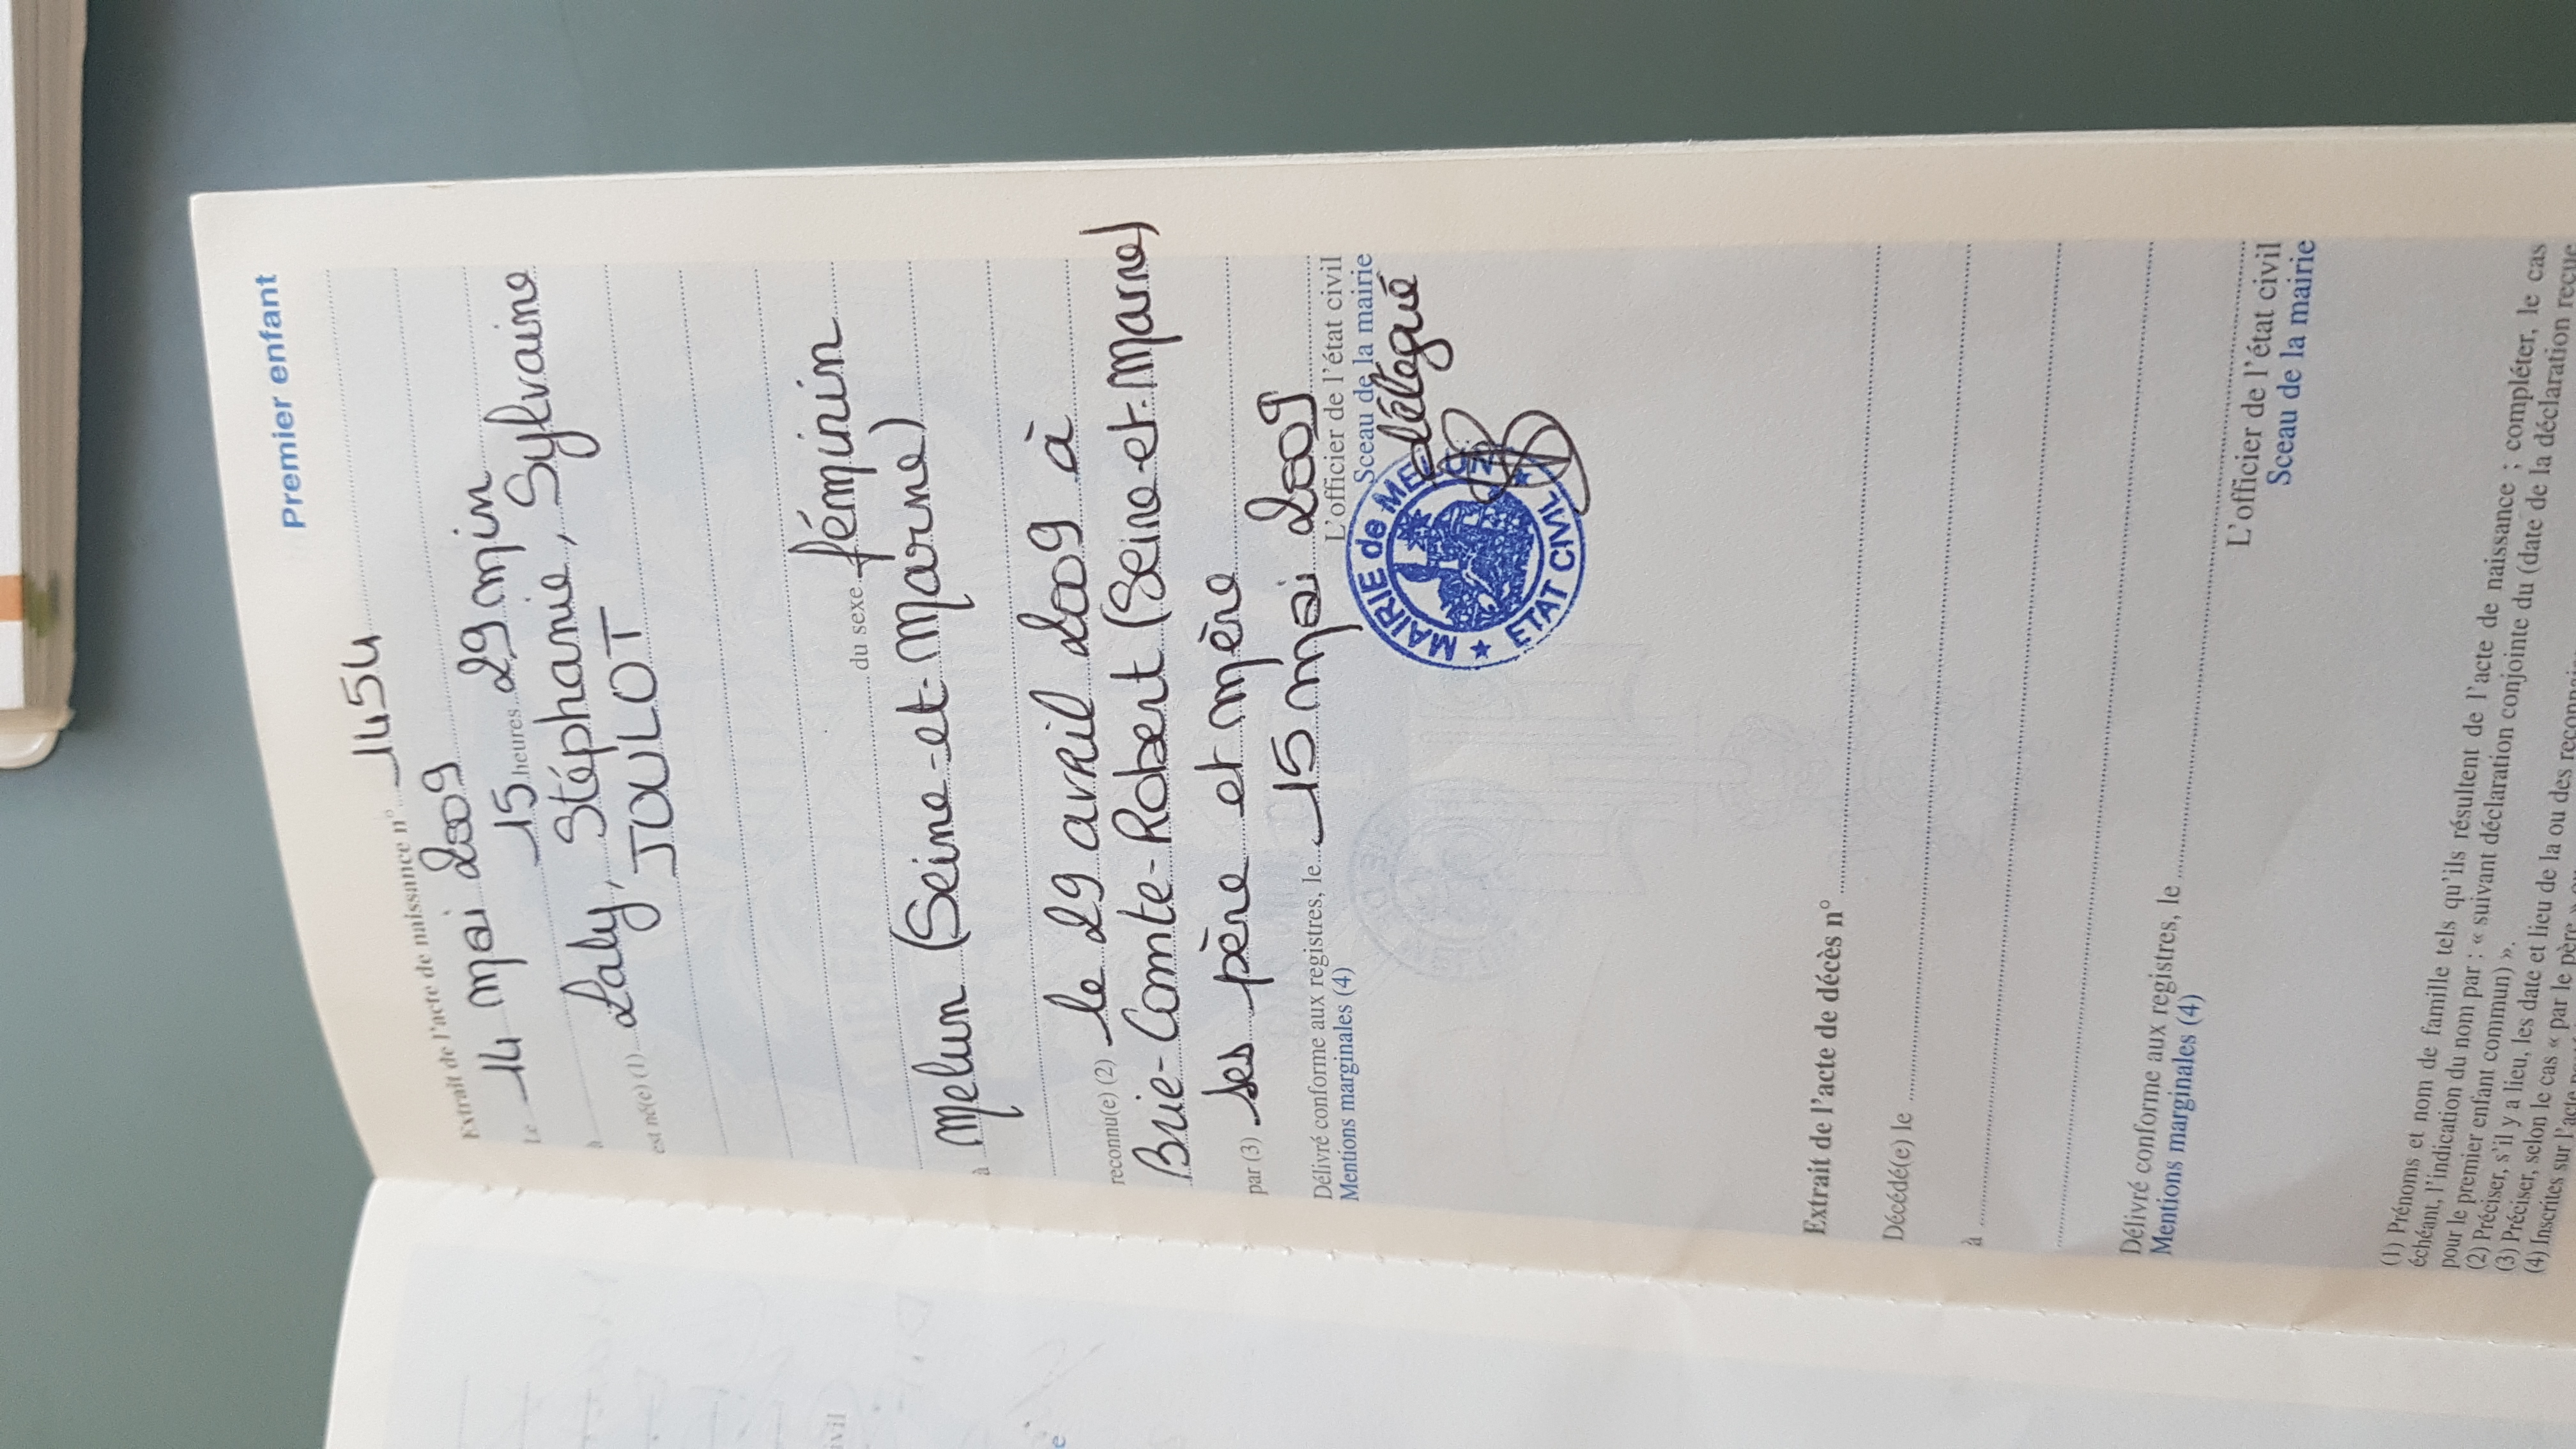 Premier enfant
Extrait de l'acte de naissance n° 1454
Le 14 mai 2009
à 15 heures 29 min
est né(e) (1) Laly, Stéphanie, Sylvaine
JOULOT
du sexe féminin
à Melun (Seine-et-Marne)
reconnu(e) (2) le 29 avril 2009 à
Brie-Comte-Robert (Seine-et-Marne)
par (3) ses père et mère
Délivré conforme aux registres, le 15 mai 2009
Mentions marginales (4)
L'officier de l'état civil
Sceau de la mairie
délégué
MAIRIE de MELUN
ETAT CIVIL
Extrait de l'acte de décès n°
Décédé(e) le
à
Délivré conforme aux registres, le
Mentions marginales (4)
L'officier de l'état civil
Sceau de la mairie
(1) Prénoms et nom de famille tels qu'ils résultent de l'acte de naissance ; compléter, le cas
échéant, l'indication du nom par : « suivant déclaration conjointe du (date de la déclaration reçue
pour le premier enfant commun) ».
(2) Préciser, s'il y a lieu, les date et lieu de la ou des
(3) Préciser, selon le cas « par le père »
(4) Inscrites sur l'acte